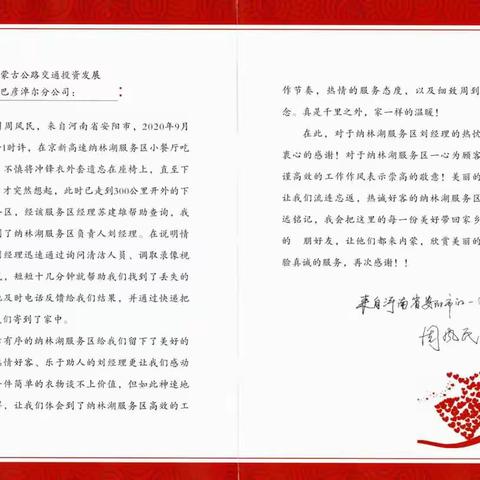 蒙古公路交通投资发展
巴彦淖尔分公司：
周风民，来自河南省安阳市，2020年9月
时许，在京新高速纳林湖服务区小餐厅吃
不慎将冲锋衣外套遗忘在座椅上，直至下
才突然想起，此时已走到300公里开外的下
务区，经该服务区经理苏建雄帮助查询，我
到了纳林湖服务区负责人刘经理。在说明情
刘经理迅速通过询问清洁人员、调取录像视
，短短十几分钟就帮助我们找到了丢失的
及时电话反馈给我们结果，并通过快递把
们寄到了家中。
有序的纳林湖服务区给我们留下了美好的
情好客、乐于助人的刘经理更让我们感动
件简单的衣物谈不上价值，但如此神速地
，让我们体会到了纳林湖服务区高效的工
作节奏，热情的服务态度，以及细致周到
念。真是千里之外，家一样的温暖！
在此，对于纳林湖服务区刘经理的热忱
衷心的感谢！对于纳林湖服务区一心为顾客
谨高效的工作作风表示崇高的敬意！美丽的
让我们流连忘返，热诚好客的纳林湖服务区
远铭记，我会把这里的每一份美好带回家乡
的 朋好友，让他们都来内蒙，欣赏美丽的
验真诚的服务，再次感谢！！
来自河南省安阳市的一
周风民